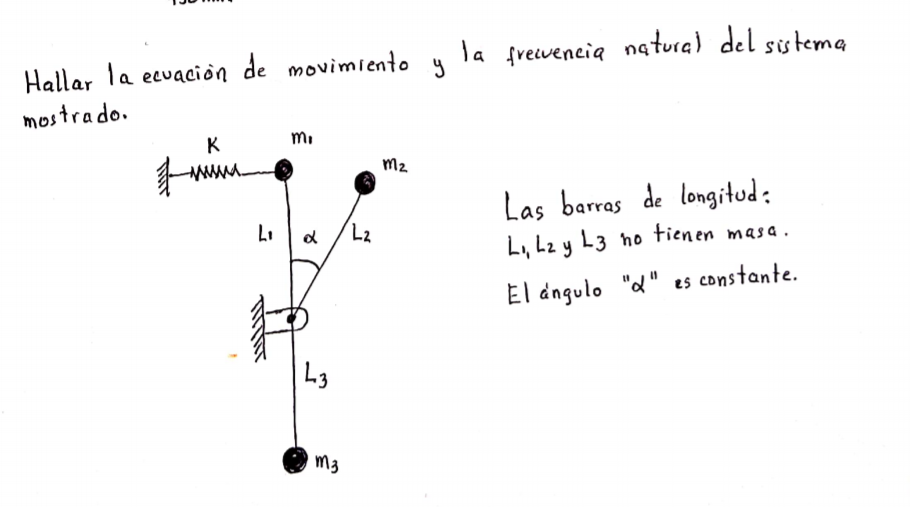 Hallar la ecuación de movimiento y la frecuencia natural del sistema
mostrado.
K
m₁
m₂
L₁
α
L₂
Las barras de longitud:
L₁, L₂ y L₃ no tienen masa.
El ángulo "α" es constante.
L₃
m₃